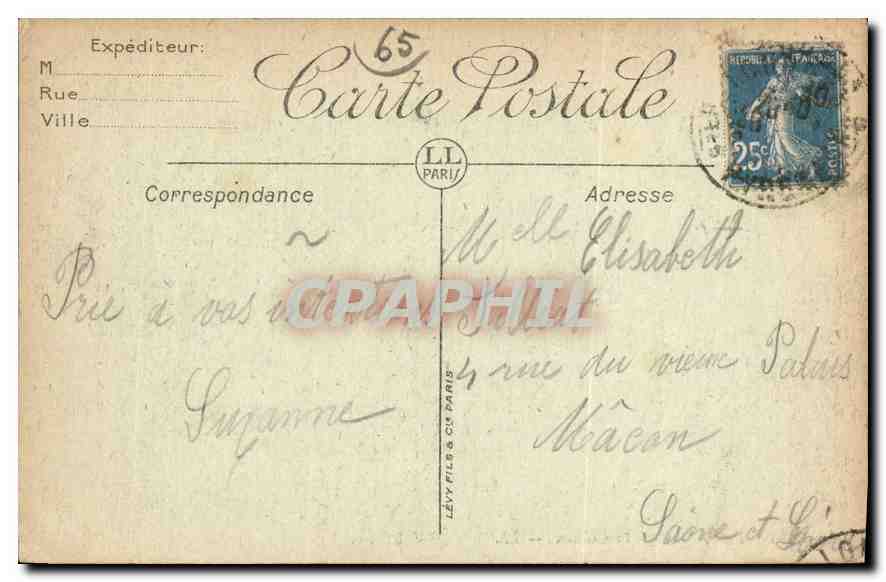 65
Expéditeur:
M
Rue
Ville
Carte Postale
REPUBLIQUE FRANCAISE
25c
POSTES
LL
PARIS
Correspondance
Adresse
Prie à vos intentions
Suzanne
Mell Elisabeth
4 rue du vieux Palais
Mâcon
Saône et Loire
CPAPHIL
LÉVY FILS & Cie PARIS